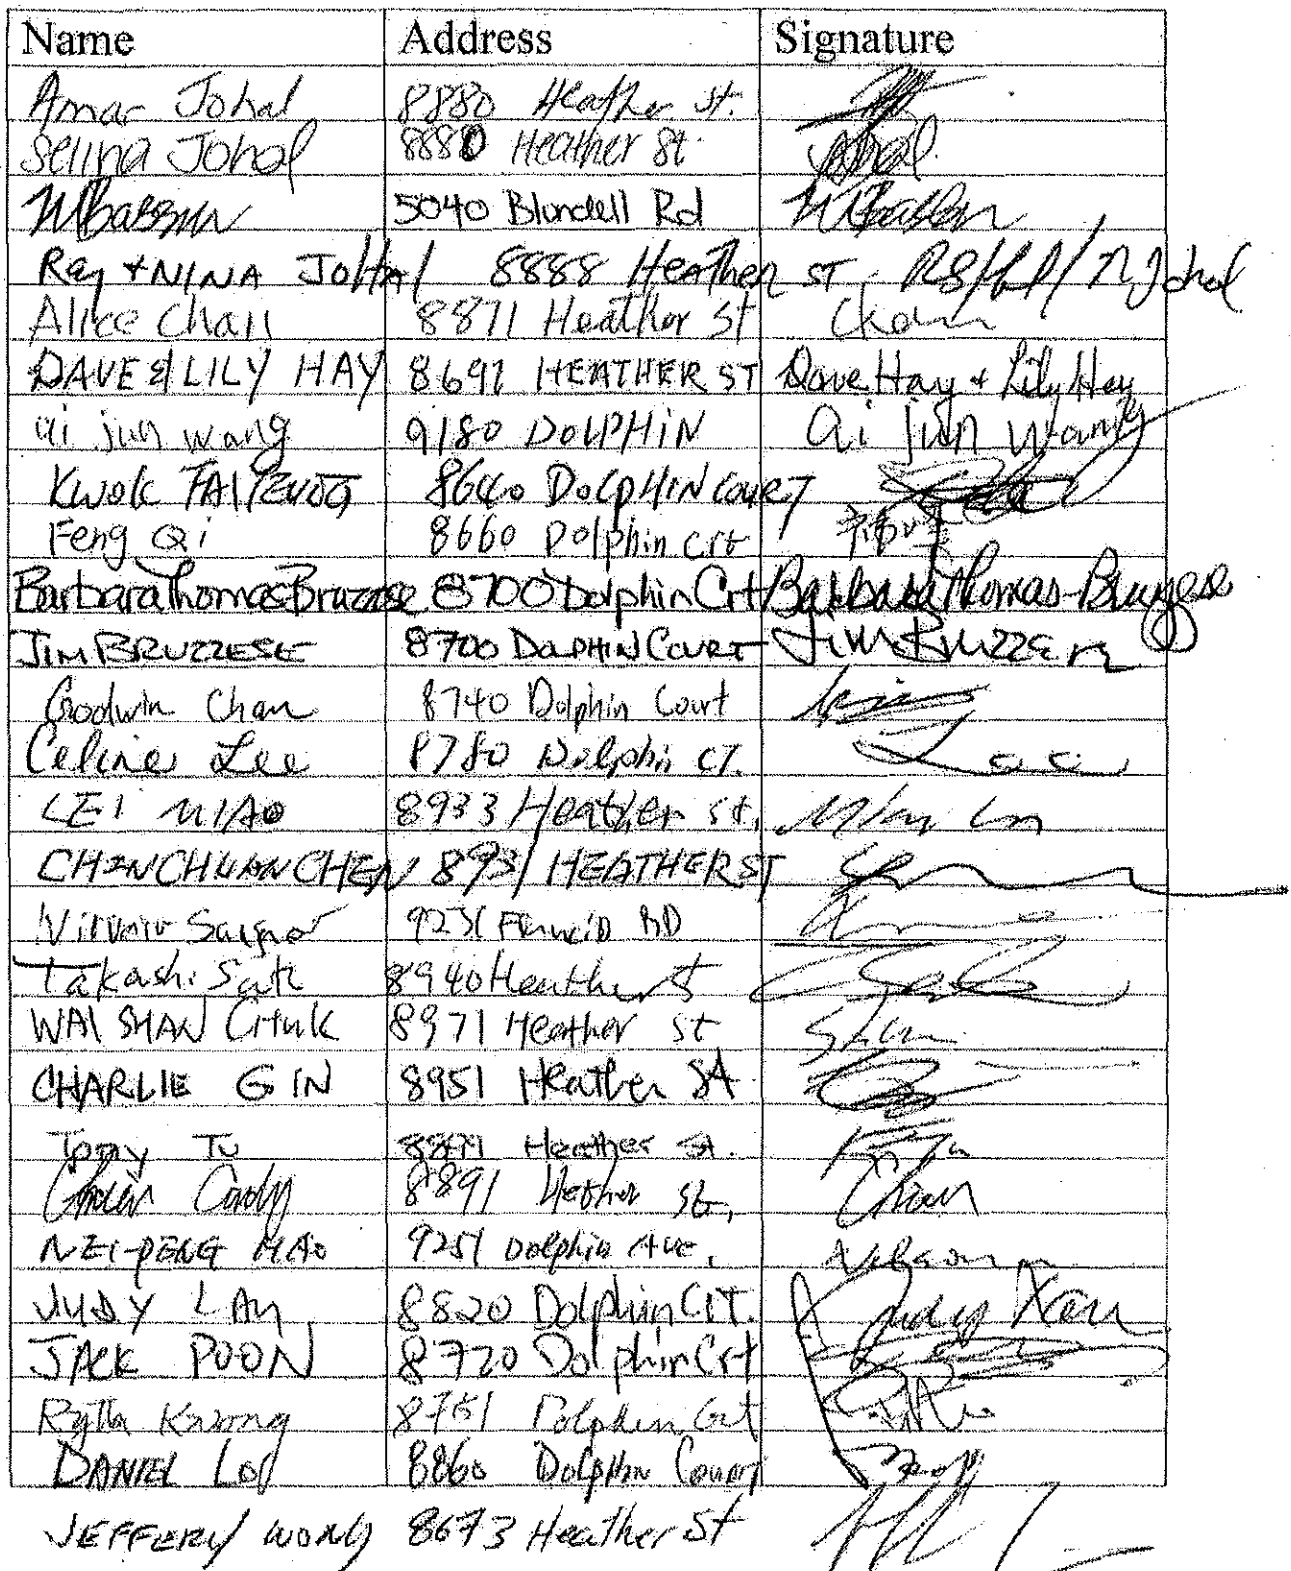 Name Address Signature
Amar Johal 8880 Heather St.
Selina Johal 8880 Heather St. Johal
5040 Blundell Rd
Ray + NINA JOHAL 8888 Heather ST, N Johal
Alice Chan 8871 Heather St Chan
DAVE & LILY HAY 8691 HEATHER ST Dave Hay + Lily Hay
Qi jun wang 9180 DOLPHIN Qi jun Wang
KWOK TAI YEUNG 8640 DOLPHIN COURT
Feng Qi 8660 Dolphin crt
Barbara Thomas Bruzzese 8700 Dolphin Crt Barbara Thomas-Bruzzese
JIM BRUZZESE 8700 DOLPHIN COURT Jim Bruzzese
Godwin Chan 8740 Dolphin Court
Celine Lee 8780 Dolphin CT. Lee
LEI MIAO 8933 Heather st.
CHINCHUAN CHEN 8931 HEATHER ST
9231 Francis RD
Takashi Sato 8940 Heather St
WAI SHAN CHUK 8971 Heather St
CHARLIE GIN 8951 Heather St
Tony Tu Heather St.
8891 Hether St,
NEI-PENG MAO 9251 Dolphin Ave.
JUDY LAM 8820 Dolphin CRT.
JACK POON 8720 Dolphin Crt
Kwong 8751 Dolphin Crt
DANIEL LOY 8860 Dolphin Court
JEFFERY WONG 8673 Heather St